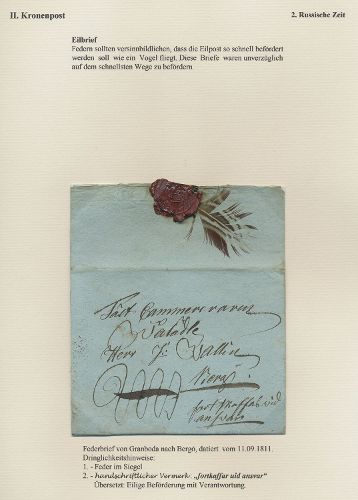 II. Kronenpost
2. Russische Zeit
Eilbrief
Federn sollten versinnbildlichen, dass die Eilpost so schnell befördert
werden soll wie ein Vogel fliegt. Diese Briefe waren unverzüglich
auf dem schnellsten Wege zu befördern.
Herr J:
Federbrief von Granboda nach Bergö, datiert vom 11.09.1811.
Dringlichkeitshinweise:
1. - Feder im Siegel
2. - handschriftlicher Vermerk: „fortkaffar uid ansvar"
Übersetzt: Eilige Beförderung mit Verantwortung.